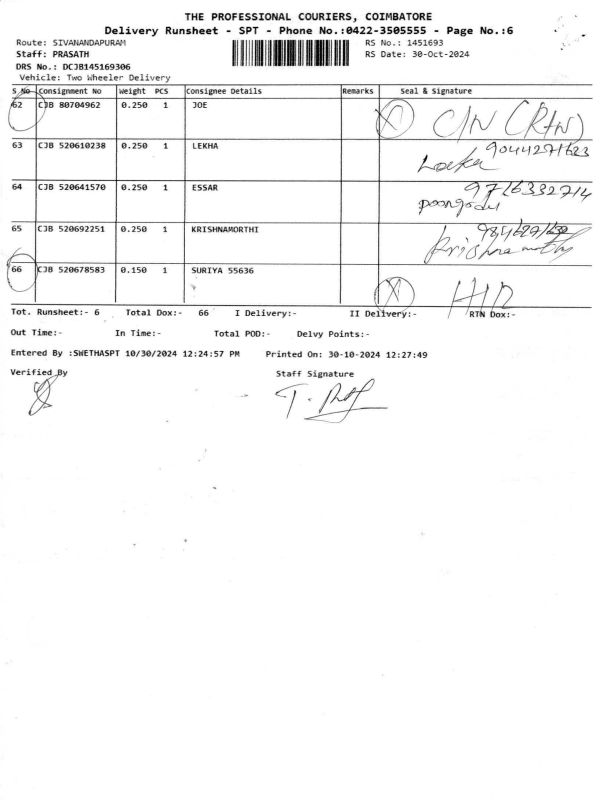 THE PROFESSIONAL COURIERS, COIMBATORE
Delivery Runsheet - SPT - Phone No.:0422-3505555 - Page No.:6
Route: SIVANANDAPURAM RS No.: 1451693
Staff: PRASATH RS Date: 30-Oct-2024
DRS No.: DCJB145169306
Vehicle: Two Wheeler Delivery
S No Consignment No Weight PCS Consignee Details Remarks Seal & Signature
62 CJB 80704962 0.250 1 JOE X C/N (RTN)
63 CJB 520610238 0.250 1 LEKHA 9044271623
Lekha
64 CJB 520641570 0.250 1 ESSAR 9716332714
poongodi
65 CJB 520692251 0.250 1 KRISHNAMORTHI
Krishnamothy
66 CJB 520678583 0.150 1 SURIYA 55636 X
Tot. Runsheet:- 6 Total Dox:- 66 I Delivery:- II Delivery:- RTN Dox:-
Out Time:- In Time:- Total POD:- Delvy Points:-
Entered By :SWETHASPT 10/30/2024 12:24:57 PM Printed On: 30-10-2024 12:27:49
Verified By Staff Signature